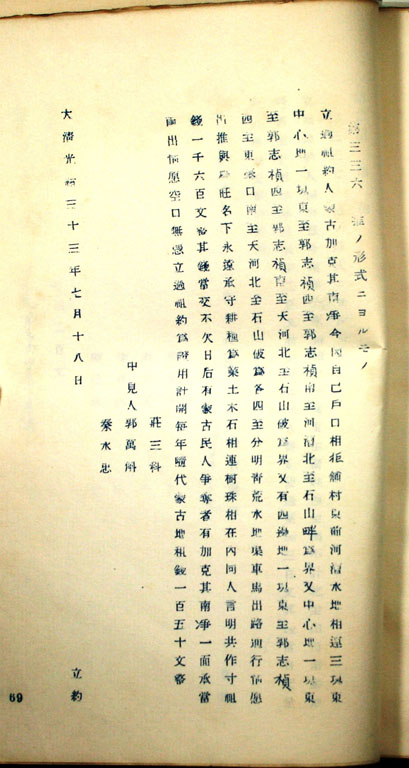 三三六 ノ形式ニヨルモノ
立過租約人蒙古加克其南淨今因自己戶口相拒舖村東前河灣水地相連三塊東
中心地一塊東至郭志楨西至郭志楨南至河灣北至石山畔為界又中心地一塊東
至郭志楨西至郭志楨南至天河北至石山破為界又有西邊地一塊東至郭志楨
西至東溝口南至天河北至石山破為各四至分明靑荒水地渠車馬出路通行情愿
出推與 旺名下永遠承守耕種為業土木石相連樹珠相在內同人言明共作寸租
錢一千六百文 其錢當交不欠日后有蒙古民人爭奪者有加克其南淨一面承當
兩出情愿空口無憑立過租約為證用計開每年隨代蒙古地租錢一百五十文
莊三科
中見人郭萬
秦水忠
大淸光緒三十三年七月十八日
立約
69